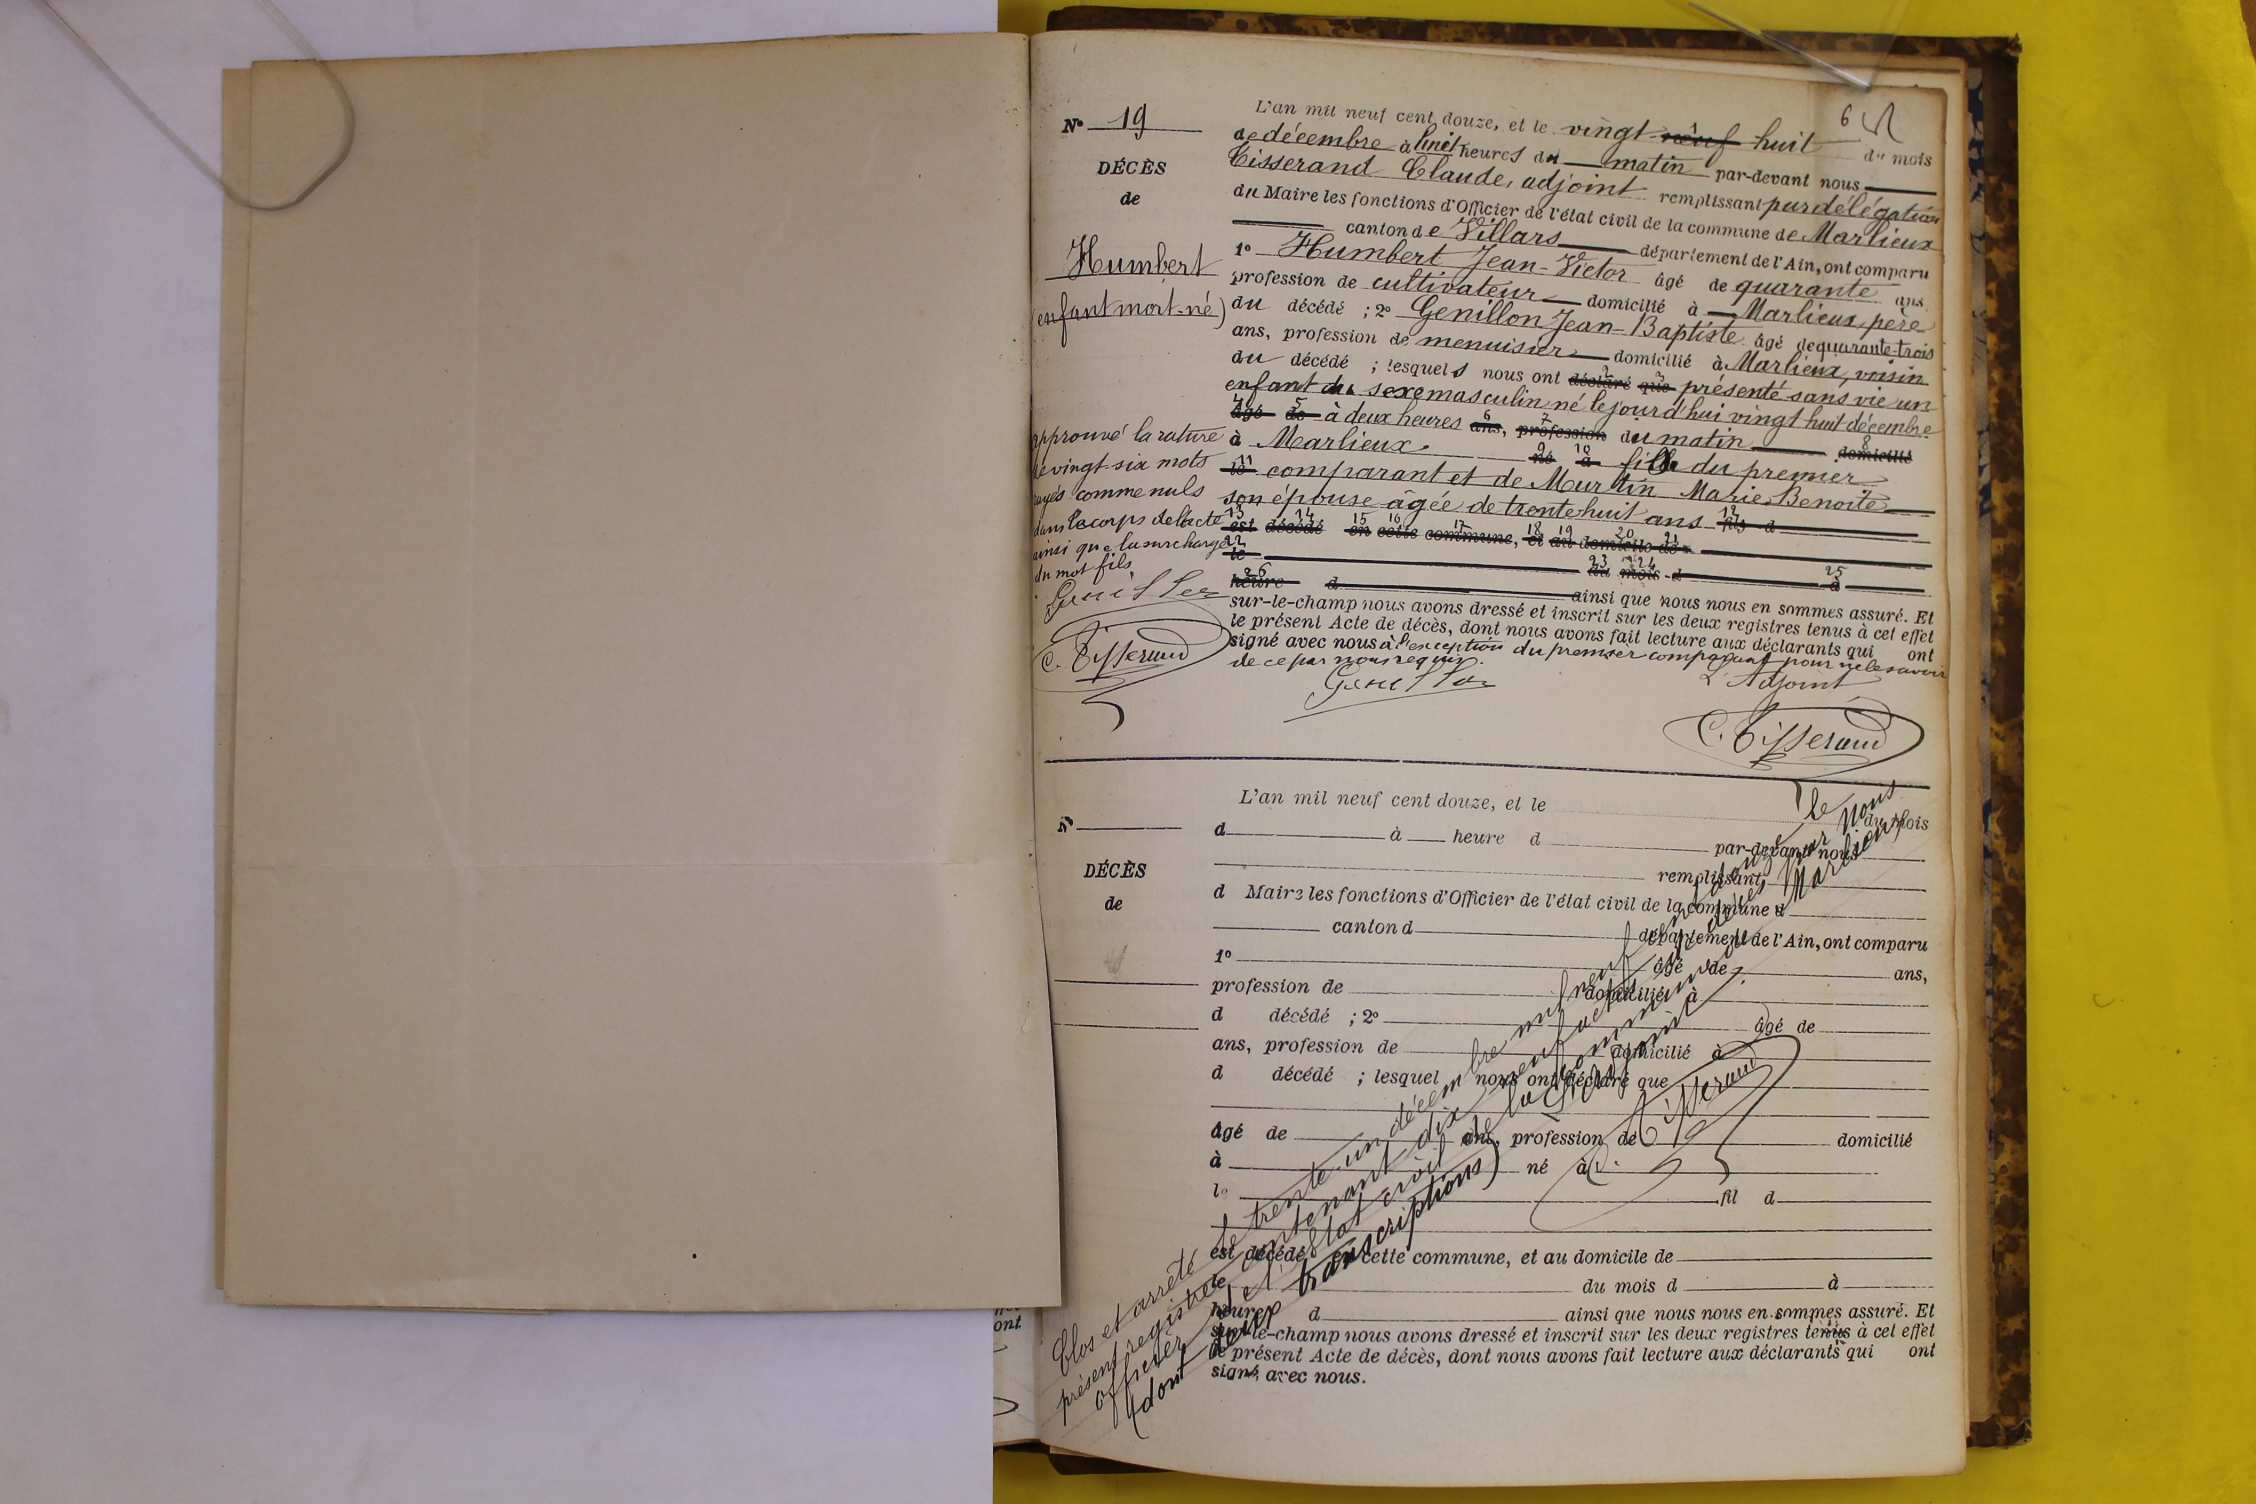 6
N° 19
DÉCÈS
de
Humbert
(enfant mort-né)
L'an mil neuf cent douze, et le vingt neuf huit du mois
de décembre à huit heures du matin par-devant nous
Tisserand Claude, adjoint remplissant par délégation
du Maire les fonctions d'Officier de l'état civil de la commune de Marlieux
canton de Villars département de l'Ain, ont comparu
1° Humbert Jean-Victor âgé de quarante ans
profession de cultivateur domicilié à Marlieux, père
du décédé ; 2° Genillon Jean-Baptiste âgé de quarante-trois
ans, profession de menuisier domicilié à Marlieux, voisin
du décédé ; lesquels nous ont déclaré que présenté sans vie un
enfant du sexe masculin né le jourd'hui vingt huit décembre
âgé de à deux heures ans, profession du matin domicilié
à Marlieux né à fils du premier
le comparant et de Martin Marie Benoite
son épouse âgée de trente huit ans fils d
est décédé en cette commune, et au domicile de
le du mois d à
heure d ainsi que nous nous en sommes assuré. Et
sur-le-champ nous avons dressé et inscrit sur les deux registres tenus à cet effet
le présent Acte de décès, dont nous avons fait lecture aux déclarants qui ont
signé avec nous à l'exception du premier comparant pour ne le savoir
de ce par nous requis.
Genillon
L'Adjoint
C. Tisserand
approuvé la rature
de vingt-six mots
rayés comme nuls
dans le corps de l'acte
ainsi que la surcharge
du mot fils
Genillon
C. Tisserand
N°
DÉCÈS
de
L'an mil neuf cent douze, et le du mois
d à heure d par-devant nous
remplissant
d Maire les fonctions d'Officier de l'état civil de la commune d
canton d département de l'Ain, ont comparu
1° âgé de ans,
profession de domicilié à
d décédé ; 2° âgé de
ans, profession de domicilié à
d décédé ; lesquel nous ont déclaré que
âgé de ans, profession de domicilié
à né à
le fil d
est décédé en cette commune, et au domicile de
le du mois d à
heure d ainsi que nous nous en sommes assuré. Et
sur-le-champ nous avons dressé et inscrit sur les deux registres tenus à cet effet
le présent Acte de décès, dont nous avons fait lecture aux déclarants qui ont
signé avec nous.
Clos et arrêté le trente-un décembre mil neuf cent douze le
présent registre contenant dix-neuf actes de décès par nous
officier de l'état civil de la commune de Marlieux,
(dont deux transcriptions)
L'adjoint
C. Tisserand
ont